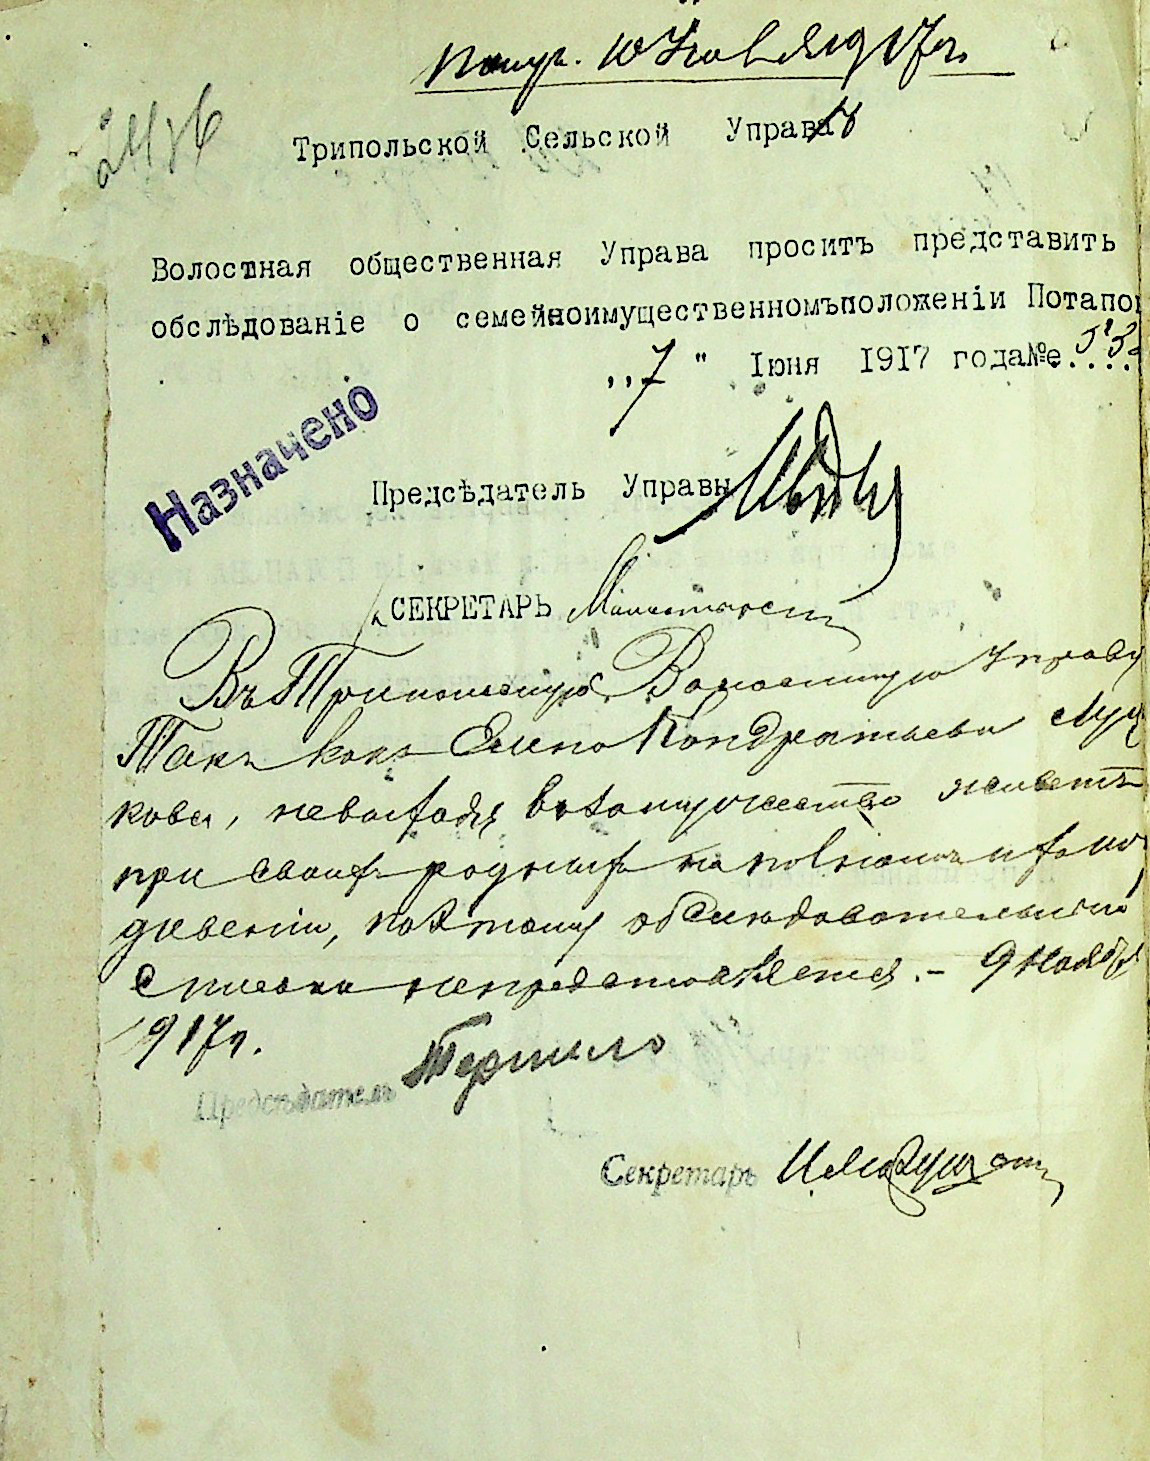 Получ. 10 Ноября 1917 г.
2436
Трипольской Сельской Управѣ
Волостная общественная Управа проситъ представить
обслѣдованіе о семейноимущественномъположеніи Потапо
„7" Іюня 1917 года№е
Назначено
Предсѣдатель Управы
СЕКРЕТАРЬ
Въ Трипольскую Волостную Управу
Такъ какъ Елена Кондратьева
кова, невыходя взамужество живетъ
при своихъ родныхъ на полномъ
дивеніи, поэтому обслѣдовательный
списокъ непредставляется. - 9 Ноября
1917 г.
Предсѣдатель
Секретарь